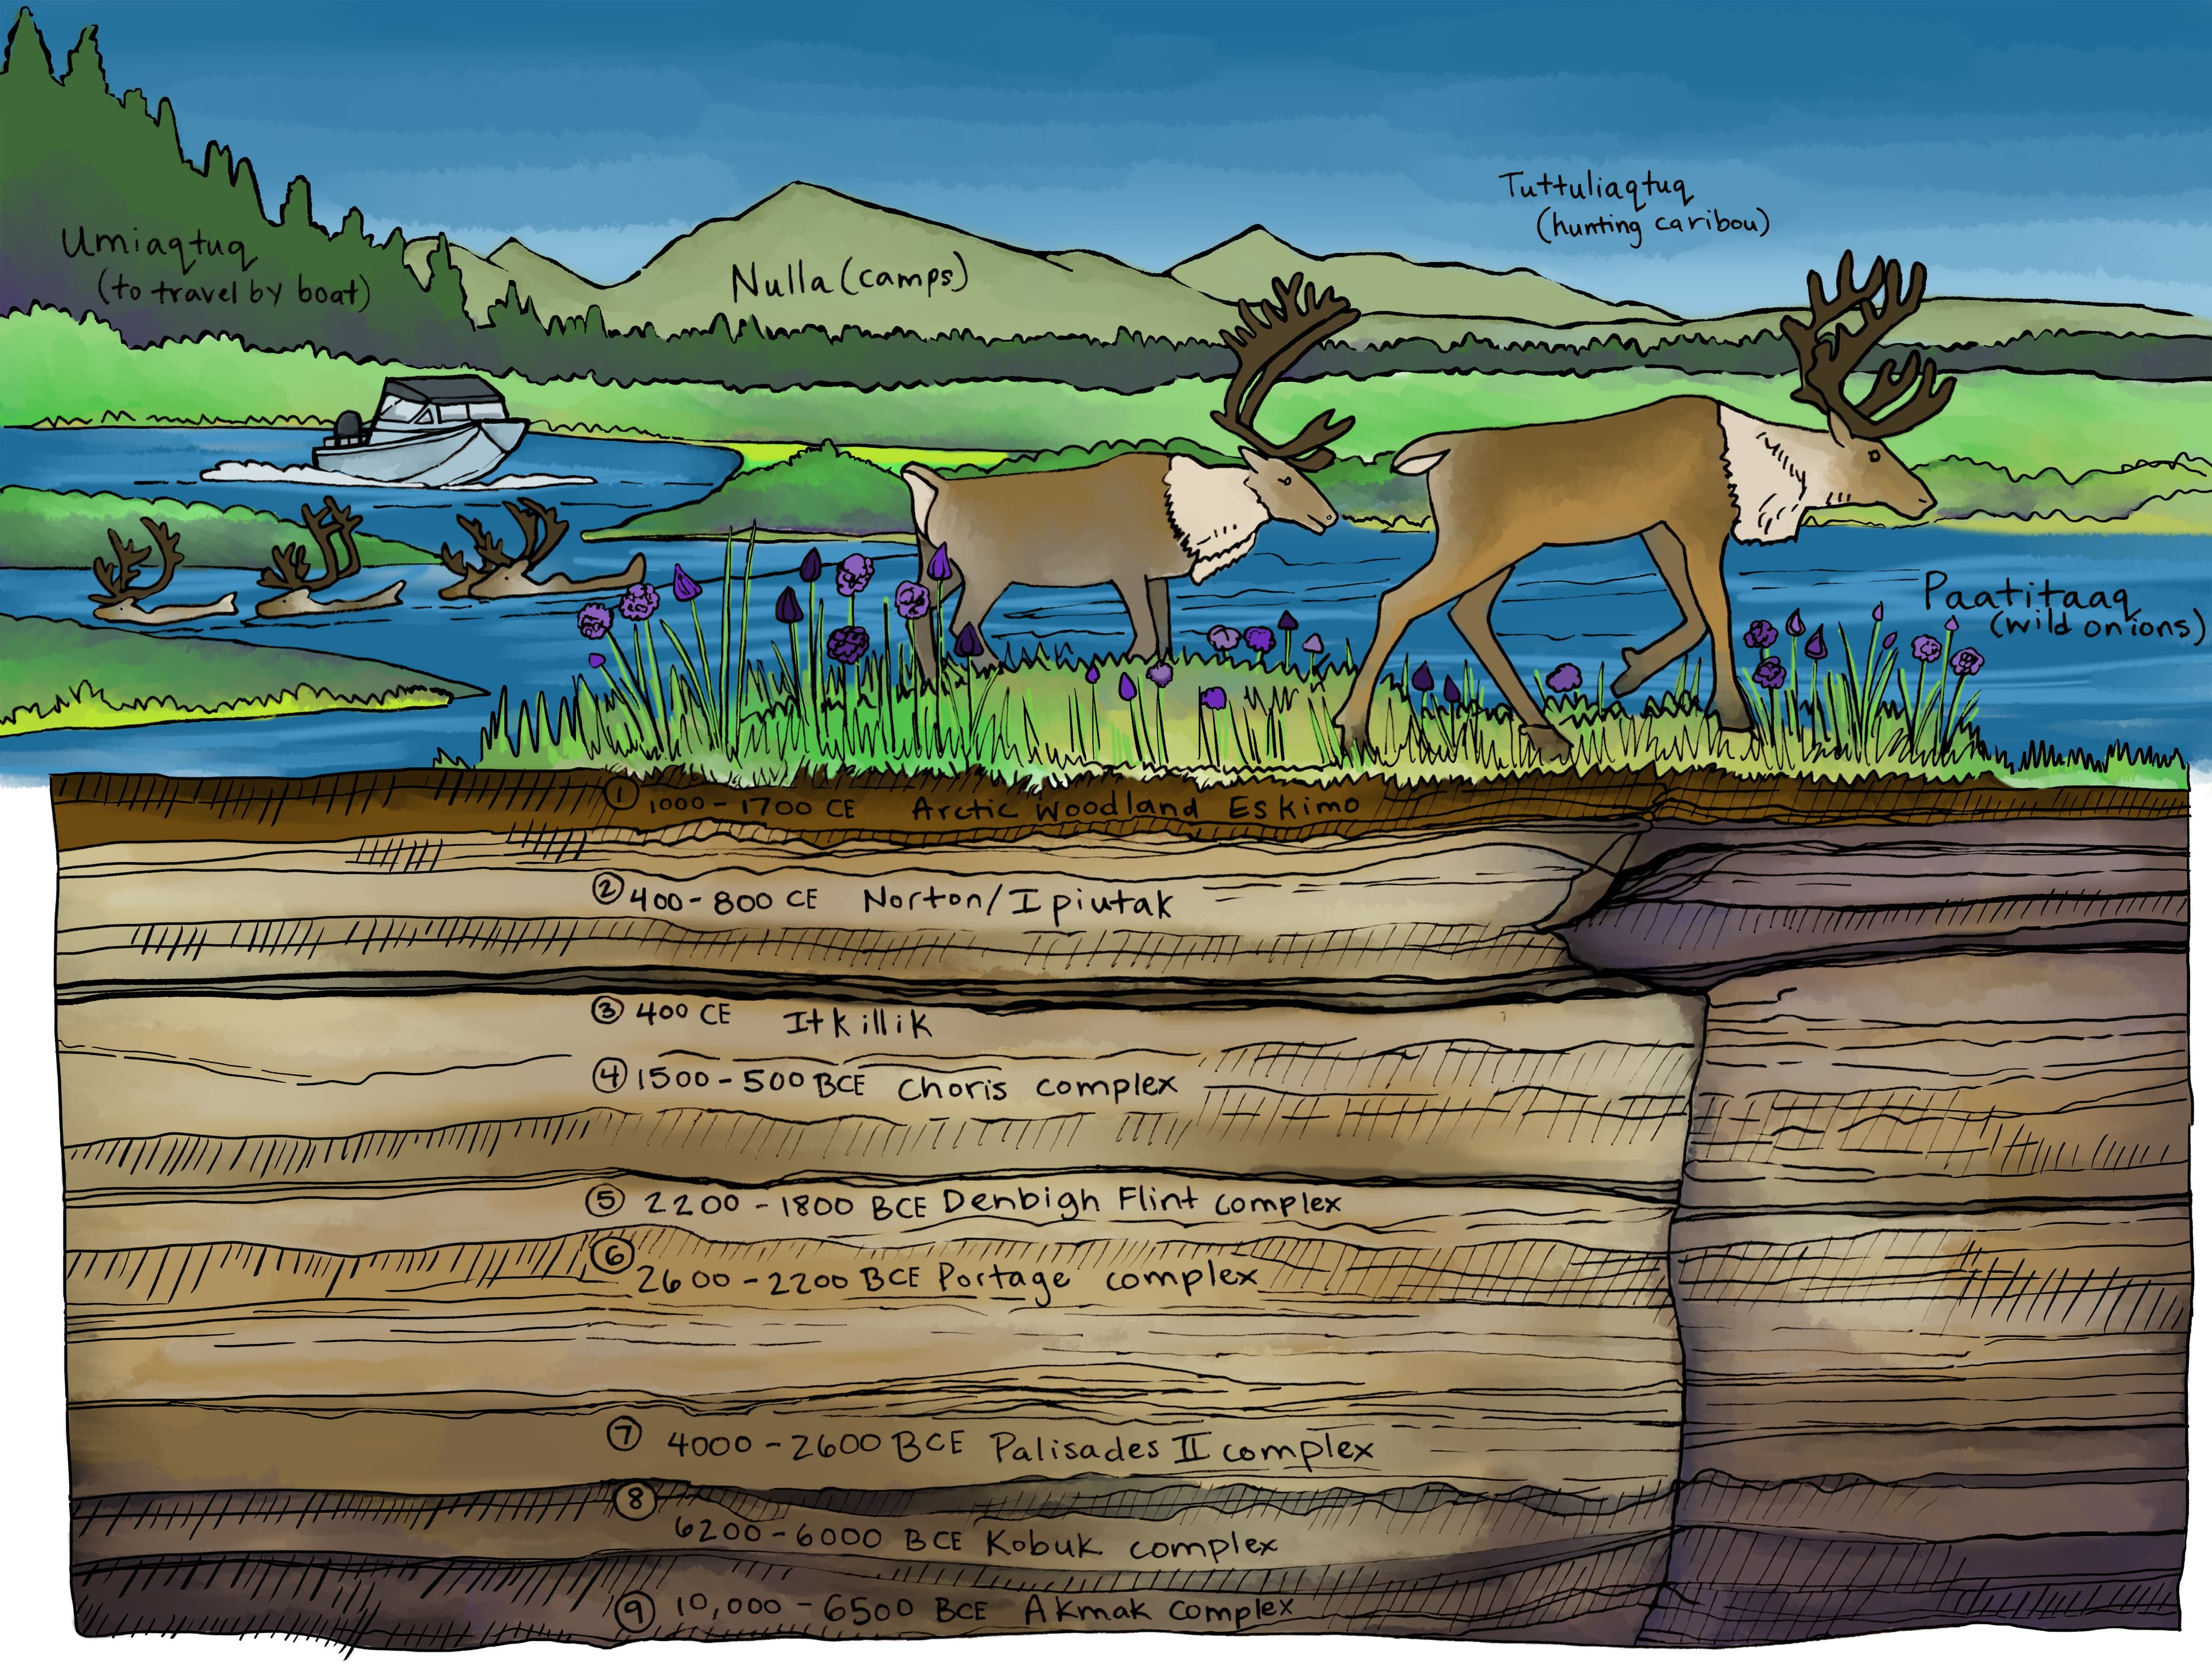 Tuttuliaqtuq
(hunting caribou)
Umiaqtuq
(to travel by boat)
Nulla (camps)
Paatitaaq
(wild onions)
1 1000-1700 CE Arctic Woodland Eskimo
2 400-800 CE Norton/Ipiutak
3 400 CE Itkillik
4 1500-500 BCE Choris complex
5 2200-1800 BCE Denbigh Flint complex
6 2600-2200 BCE Portage complex
7 4000-2600 BCE Palisades II complex
8 6200-6000 BCE Kobuk complex
9 10,000-6500 BCE Akmak complex